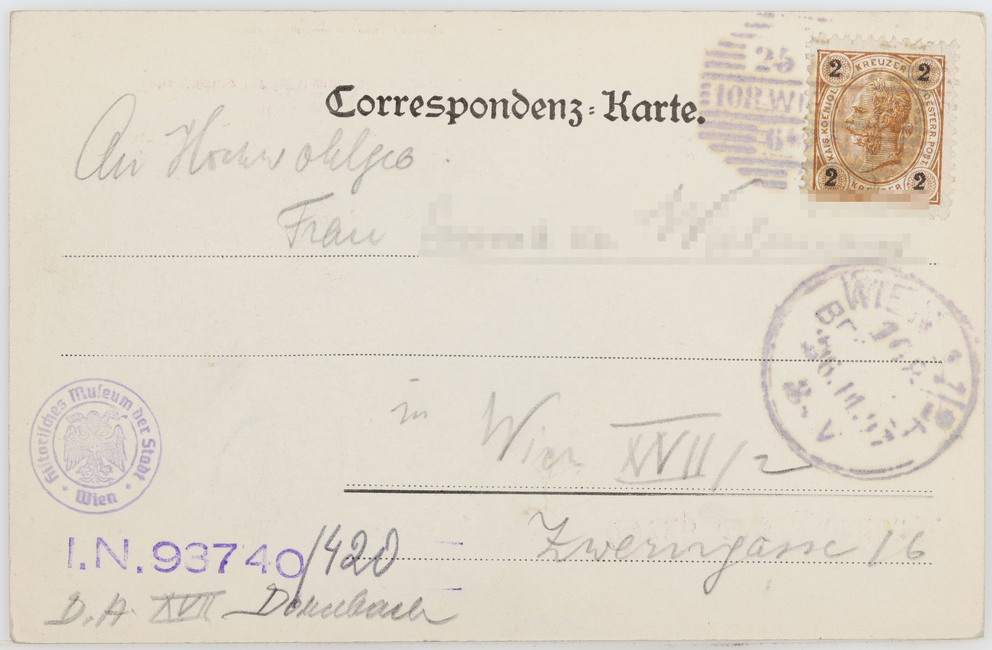 Correspondenz-Karte.
2 KREUZER 2
KAIS. KOENIGL. OESTERR. POST.
2 KREUZER 2
25
108 WI
6
An Hochwohlgeb.
Frau
WIEN 108
8. V
Historisches Museum der Stadt
Wien
in Wien XVII/2
Zwerngasse 16
I.N. 93740/420
D.A. XVII Dornbach